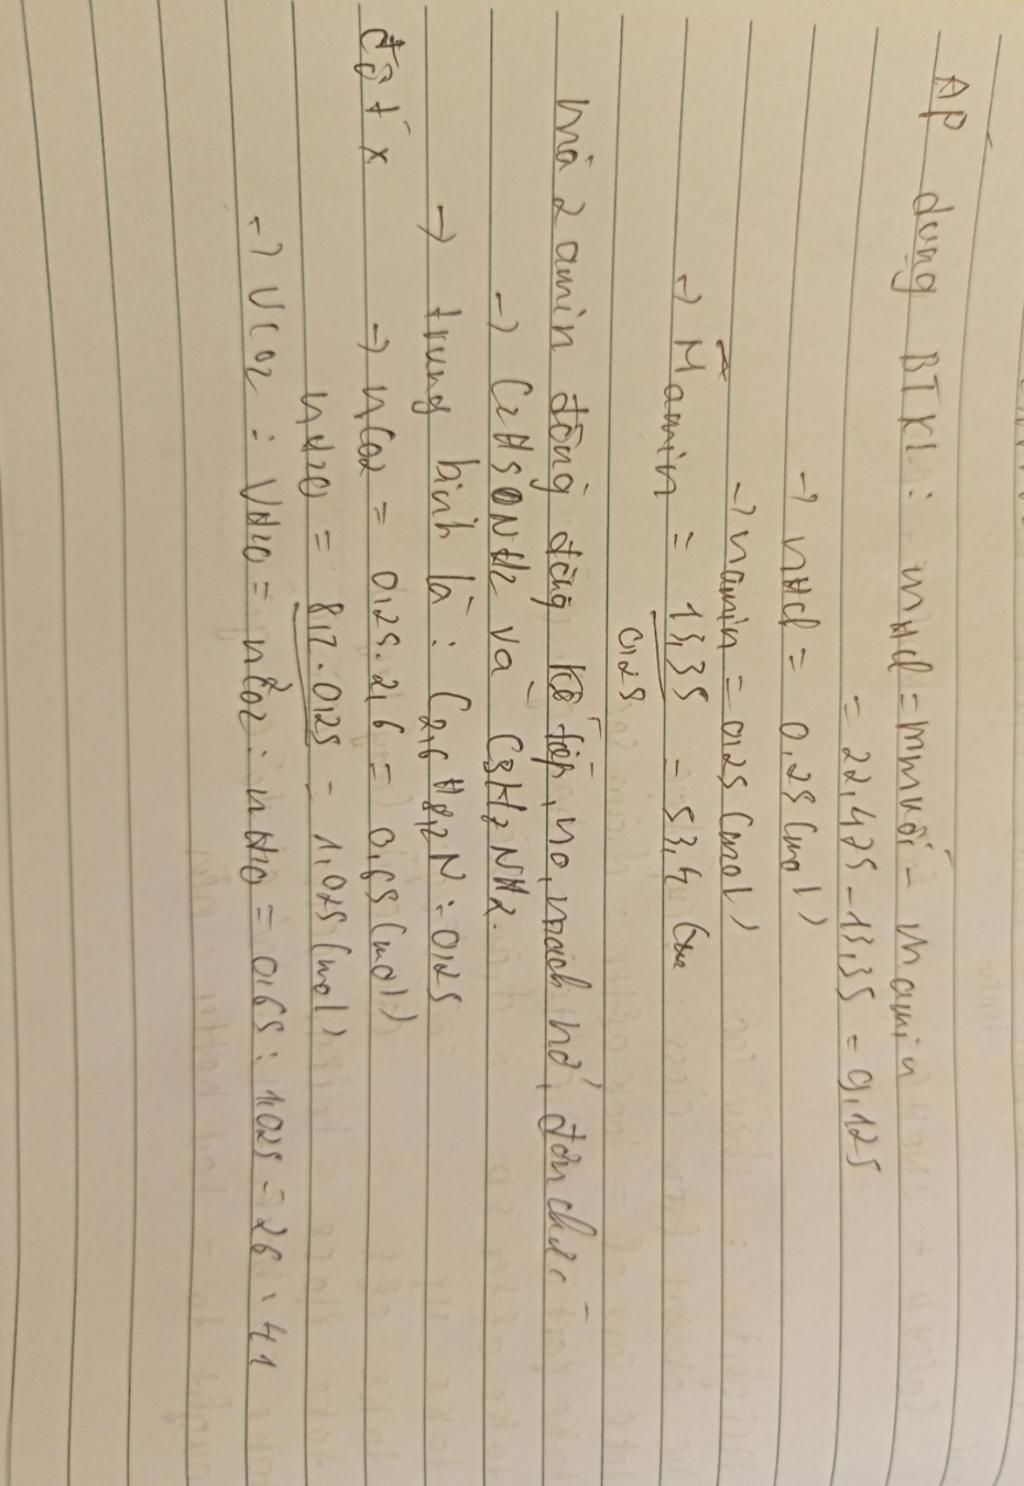 Áp dụng BTKL: mHCl = mmuối - mamin
= 22,475 - 13,35 = 9,125
→ nHCl = 0,25 (mol)
→ namin = 0,25 (mol)
→ M amin = 13,35 / 0,25 = 53,4
mà 2 amin đồng đẳng kế tiếp, no, mạch hở, đơn chức
→ C2H5NH2 và C3H7NH2.
→ trung bình là: C2,6H8,2N: 0,25
đốt x → nCO2 = 0,25.2,6 = 0,65 (mol)
nH2O = 8,2.0,25 / 2 = 1,025 (mol)
→ VCO2 : VH2O = nCO2 : nH2O = 0,65 : 1,025 = 26 : 41